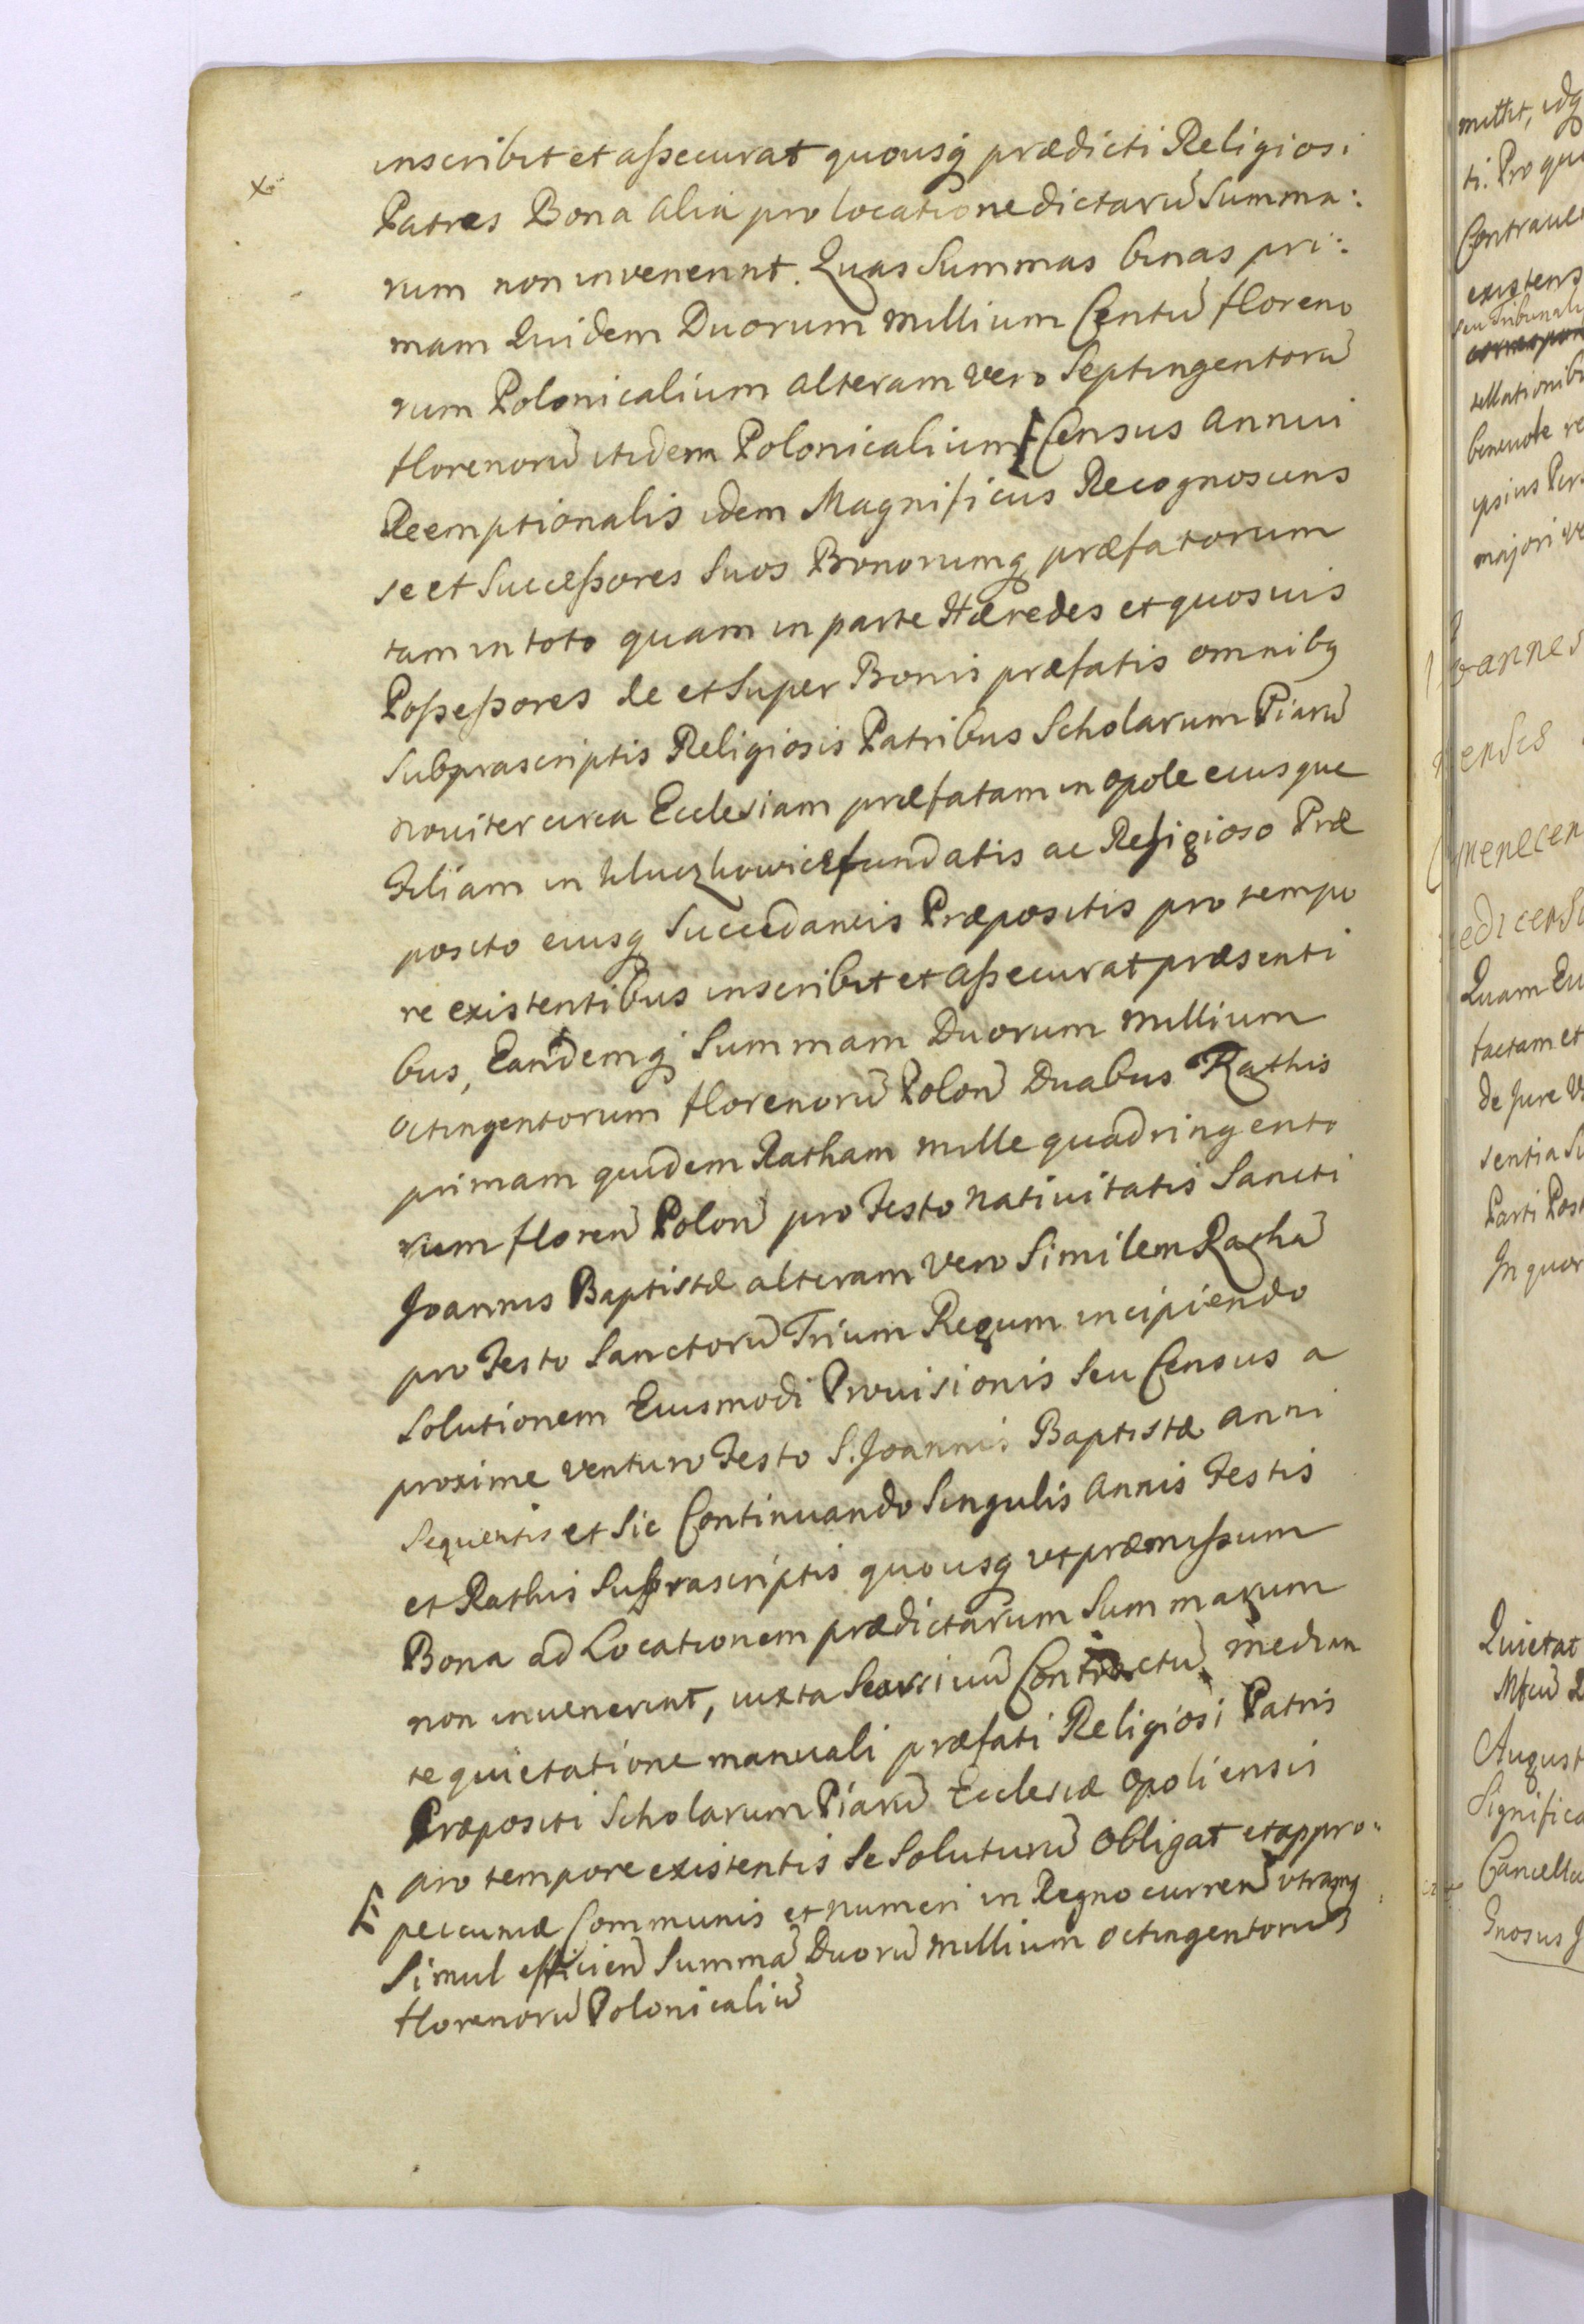 inscribit et aßecurat quousq prædicti Religiosi
Patres Bona alia pro locatione dictarū Summa:
rum non invenerint. Quas Summas binas pri:
mam Quidem Duorum millium Centū floreno
rum Polonicalium alteram vero Septingentorū
florenorū itidem Polonicalium Census annui
Reemptionalis idem Magnificus Recognoscens
se et Succeßores Suos Bonorumq præfatorum
tam in toto quam in parte Hæredes et quosuis
Poßeßores de et Super Bonis præfatis omnibq
Suprascriptis Religiosis Patribus Scholarum Piarū
nouiter circa Ecclesiam præfatam in Opole eiusque
Filiam in fundatis ac Religioso Præ
posito eiusq Succedaneis Præpositis pro tempo
re existentibus inscribit et aßecurat præsenti
bus, Eandemq Summam Duorum millium
octingentorum florenorū Polon̄ Duabus Rathis
primam quidem Ratham mille quadringento
rum floren̄ Polon̄ pro Festo Natiuitatis Sancti
Joannis Baptistæ alteram vero Similem Rathā
pro Festo Sanctorū Trium Regum incipiendo
Solutionem Eiusmodi Prouisionis Seu Census a
proxime venturo Festo S. Joannis Baptistæ anni
Sequentis et Sic Continuando Singulis Annis Festis
et Rathis Suprascriptis quousq ut præmißum
Bona ad Locationem prædictarum Summarum
non inuenerint, iuxta Contractū median
te quietatione manuali præfati Religiosi Patris
Præpositi Scholarum Piarū Ecclesiæ Opoliensis
pro tempore existentis Se Soluturū Obligat et appro:
pecuniæ Communis et numeri in Regno curren̄ utramq
Simul efficien̄ Summā Duorū millium octingentorū
florenorū Polonicaliū
mittit, idq
ti. Pro quo
existens
seu Tribunali
ipsius
majori
Quam
factam et
de Jure
sentia
Parti
In quor
Quietat
August
Significa